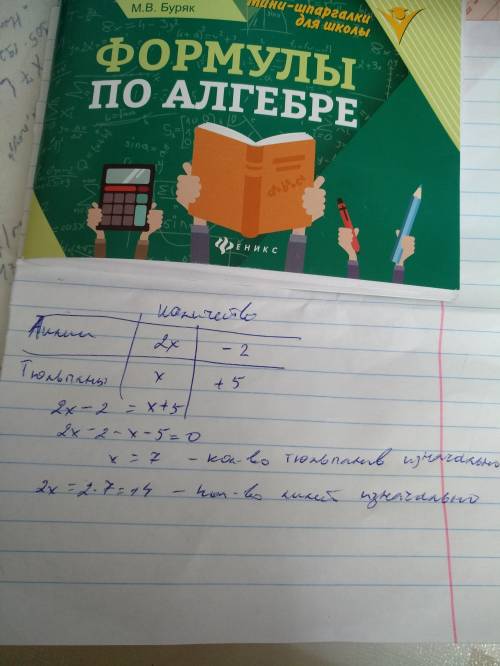 М.В. Буряк
Мини-шпаргалки
для школы
ФОРМУЛЫ
ПО АЛГЕБРЕ
ФЕНИКС
количество
Лилии 2x - 2
Тюльпаны x + 5
2x - 2 = x + 5
2x - 2 - x - 5 = 0
x = 7 - кол-во тюльпанов изначально
2x = 2·7 = 14 - кол-во лилий изначально